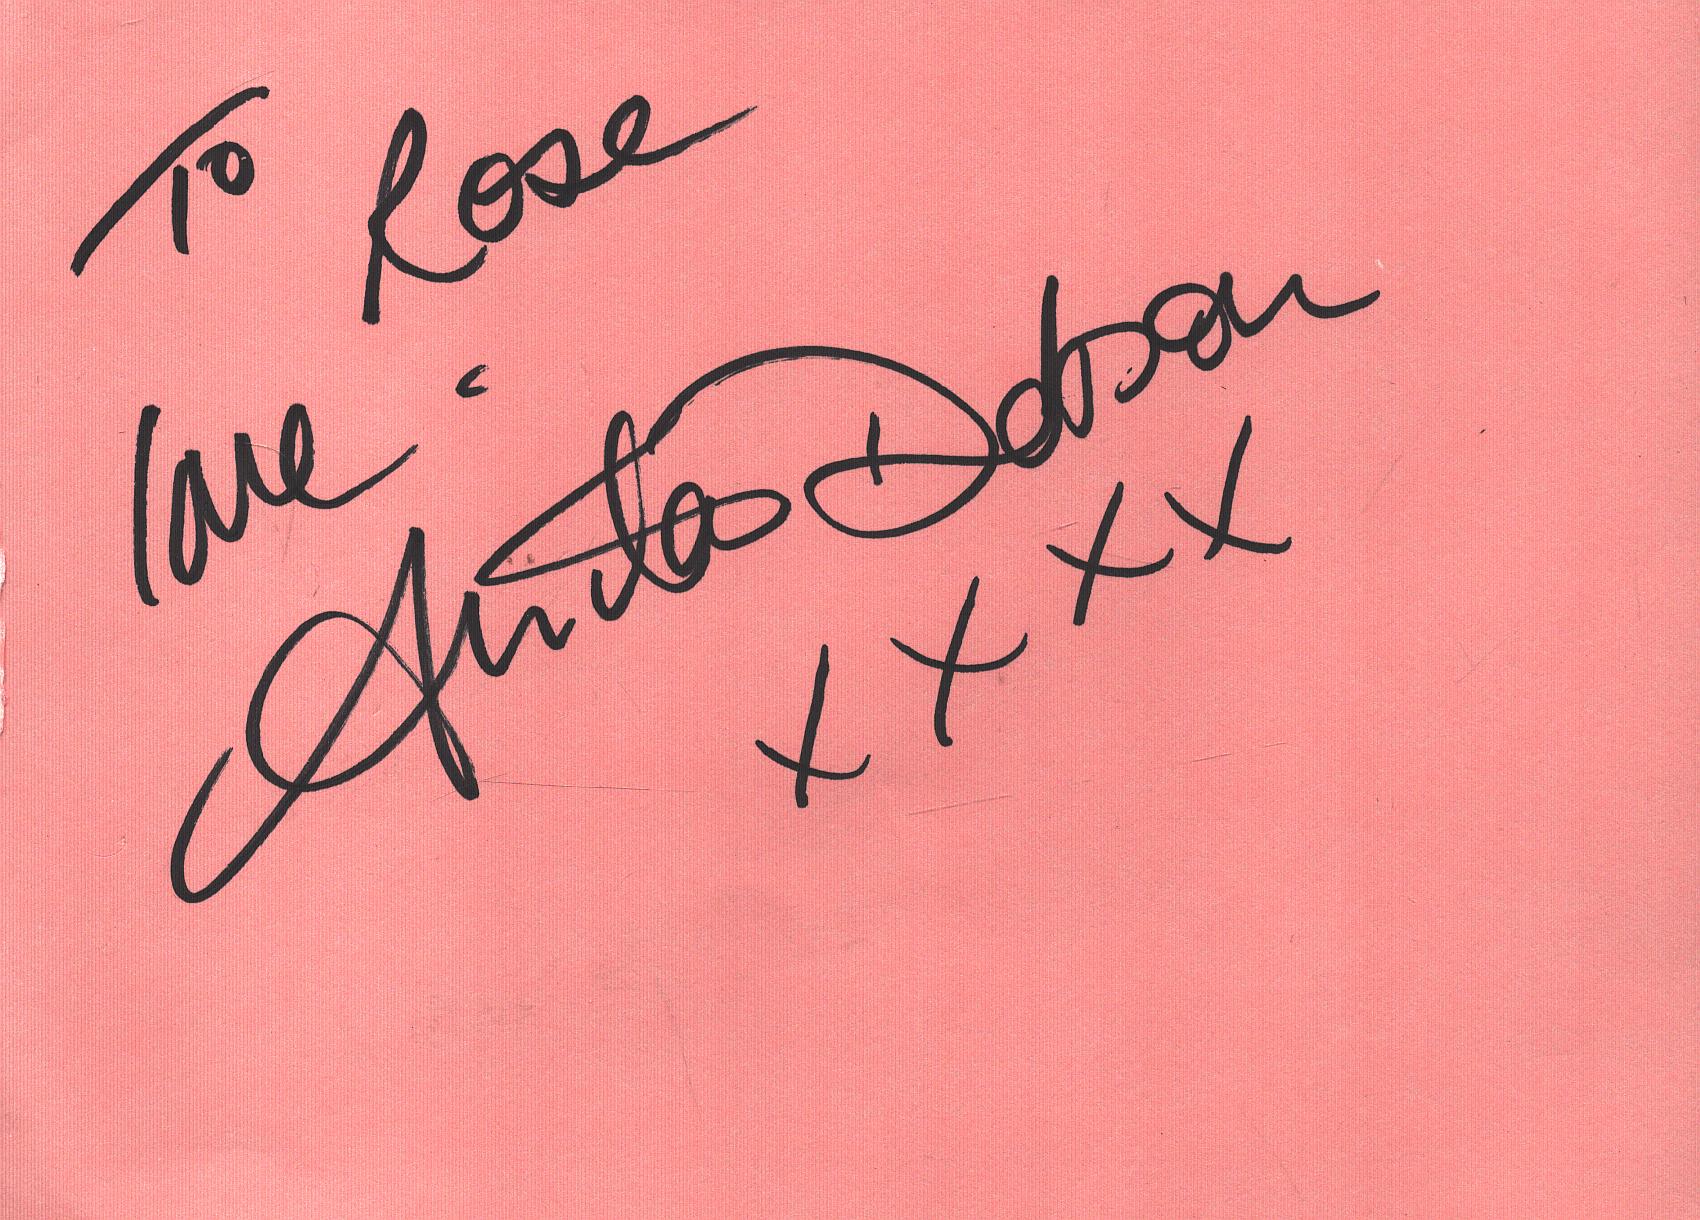 To Rose
love
Anita Dobson
x x x x